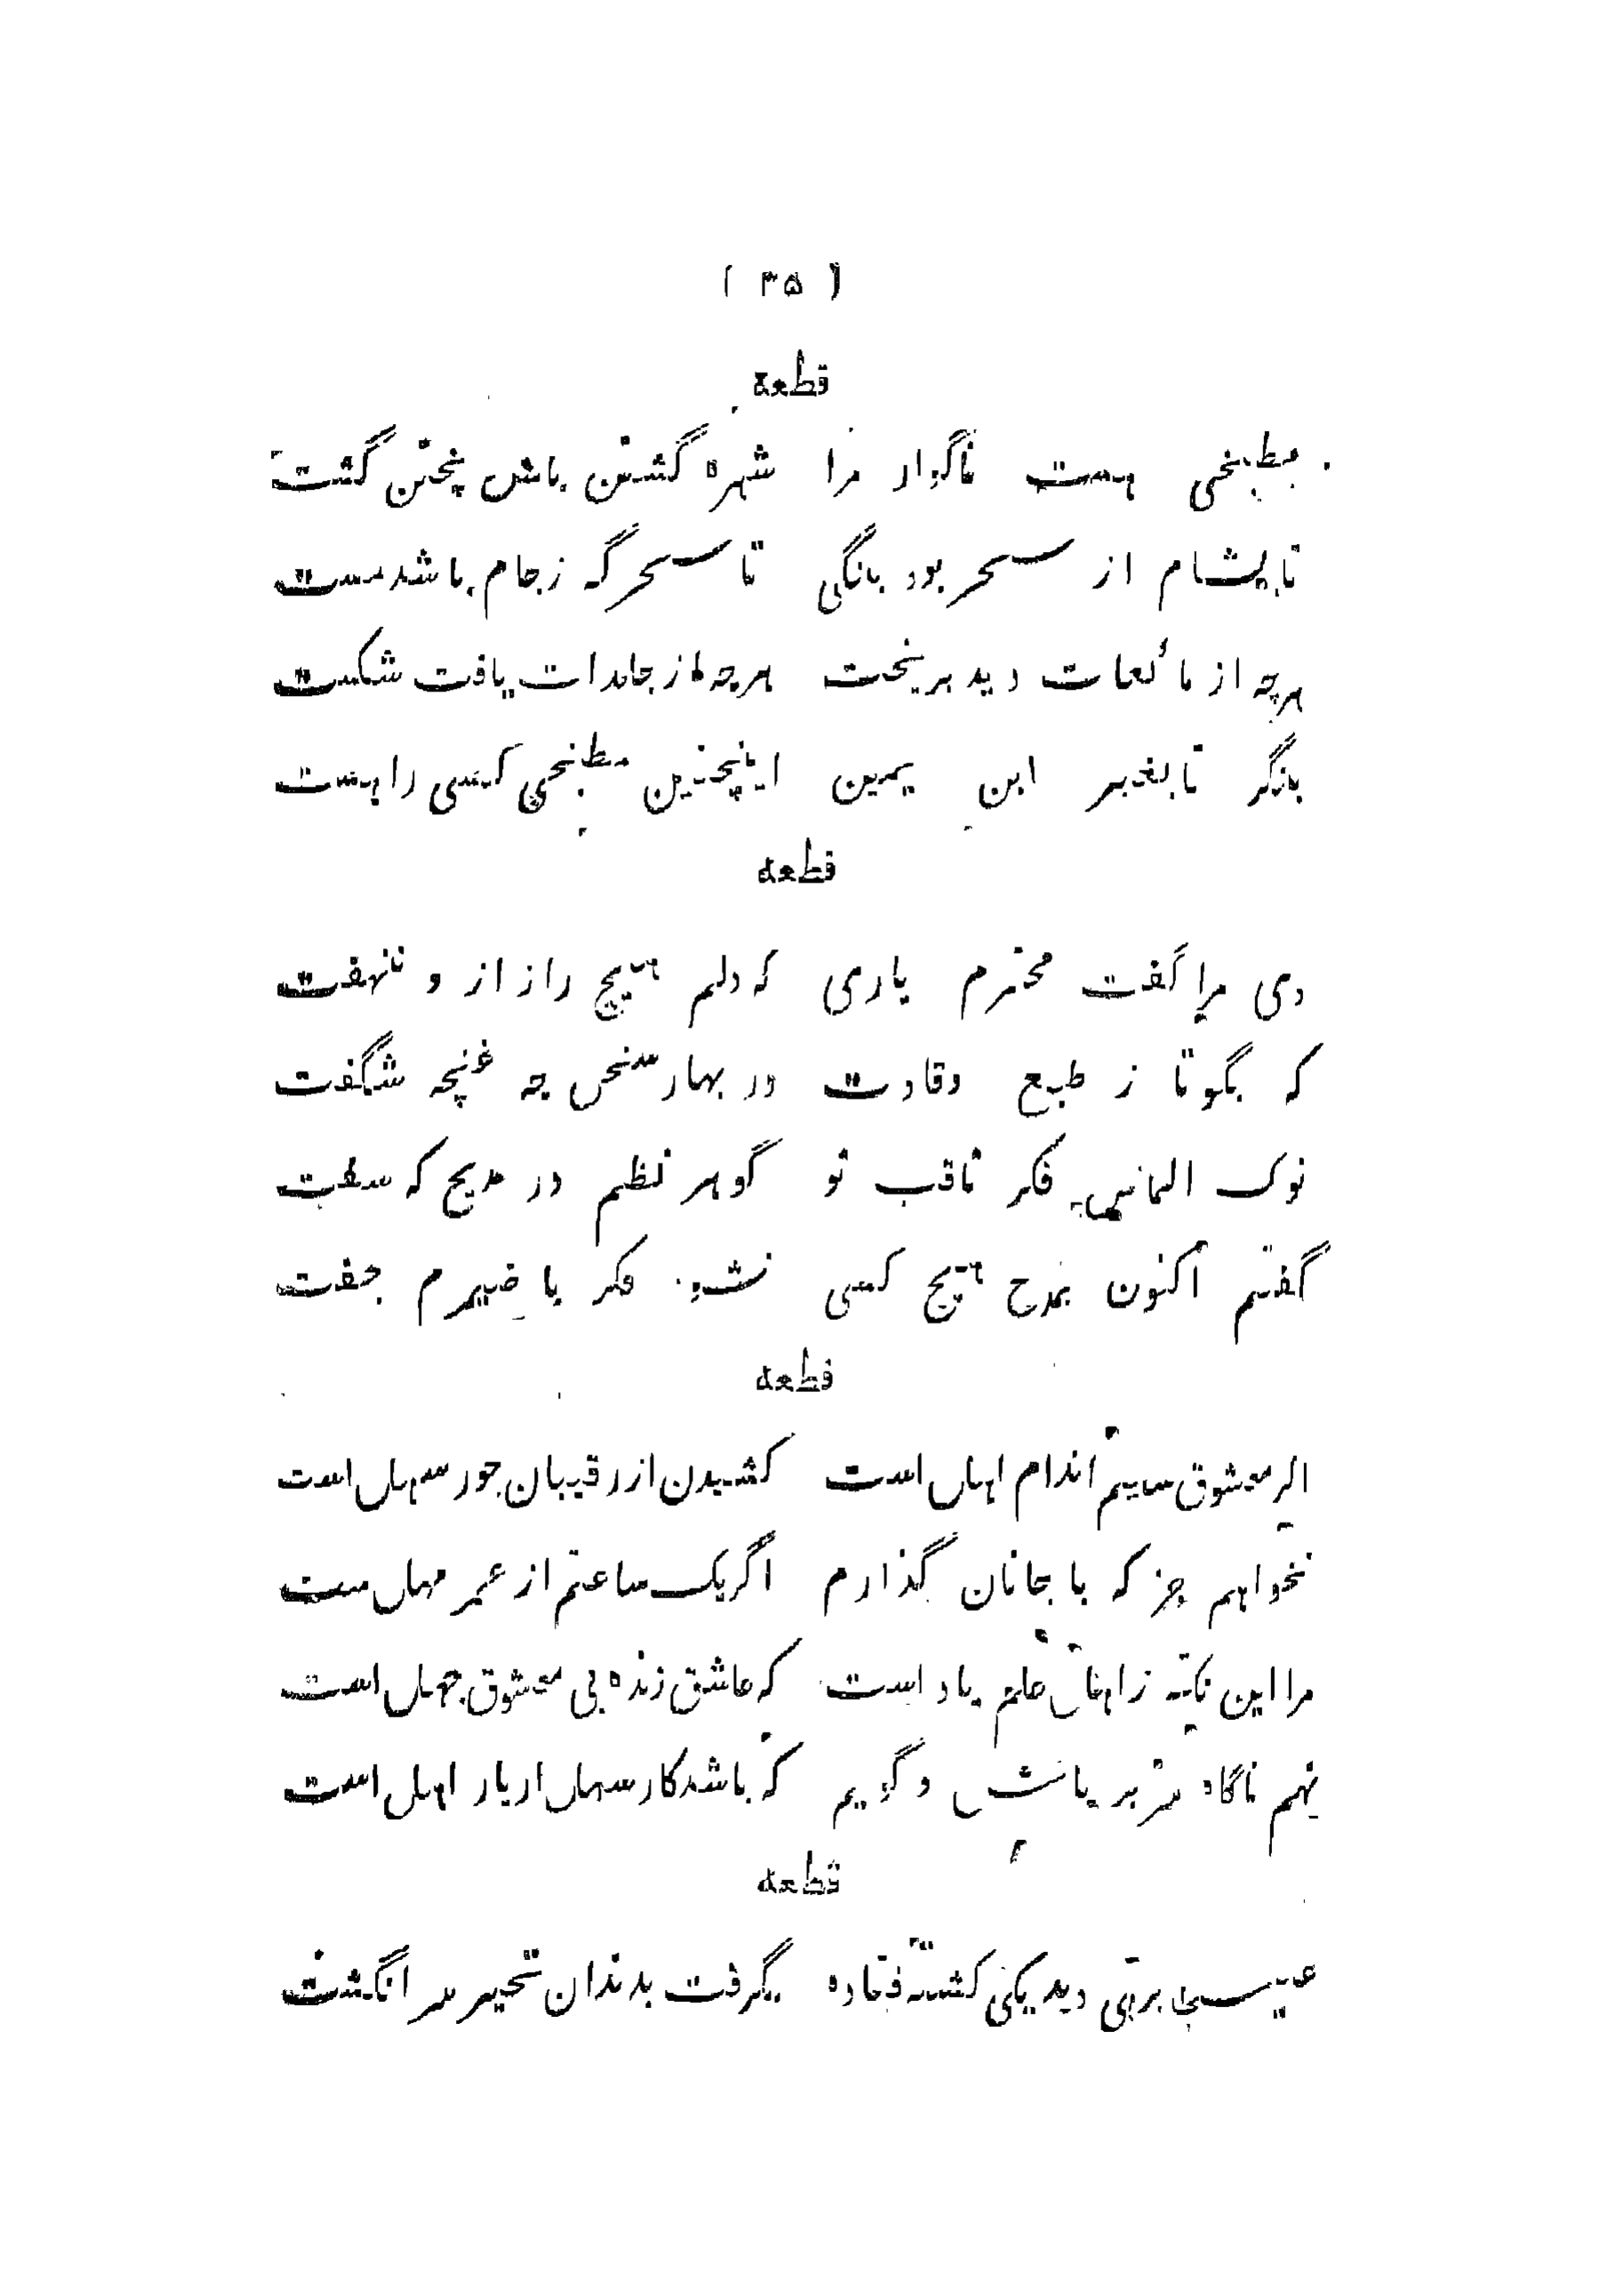 ( ۳۵ )
قطعة
مطبخی هست ناگوار مرا شهره گشتن باش پختن گشت
تا بشام از سحر بود بانگی تا سحر گه ز جام باشد مست
هرچه از مائعات دید بریخت هرچه از جامدات یافت شکست
بازگر تا بغیر ابن یمین اینچنین مطبخی کسی را هست
قطعه
دی مرا گفت محترم یاری که دلم هیچ راز از و ننهفت
که بگو تا ز طبع وقادت در بهار سخن چه غنچه شگفت
نوک الماس فکر ثاقب تو گوهر نظم در مدیح که سفت
گفتم اکنون بمدح هیچ کسی نشود فکر با ضمیرم جفت
قطعه
اگر معشوق سیم اندام اهل است کشیدن از رقیبان جور سهل است
نخواهم جز که با جانان گذارم اگر یک ساعتم از عمر مهل ست
مرا این نکته ز اهل علم یاد است که عاشق زنده بی معشوق جهل است
نهم ناگاه سر بر پاش و گویم که باشد کار سهل ار یار اهل است
قطعه
عیسی برهی دید یکی کشته فتاده بگرفت بدندان تحیر سر انگشت